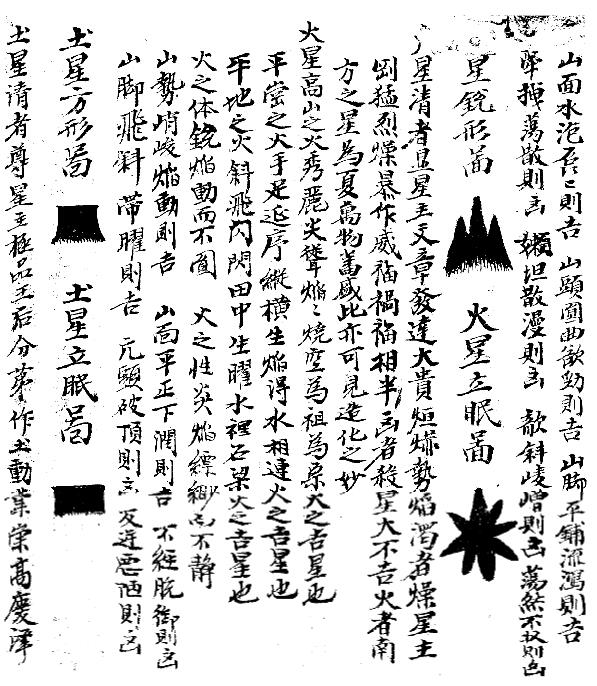 山面水泡吞仁則吉 山顛圓曲欹動則吉 山脚平鋪流瀉則吉
散則凶 嬾坦散漫則凶 欹斜崚嶒則凶 蕩然不収則凶
星銳形啚 火星立眠啚
星清者显星主文章發達大貴烜爀勢焰濁者燥星主
剛猛烈燥暴作威福禍福相半凶者殺星大不吉火者南
方之星為夏萬物萬盛此亦可見造化之妙
火星高山之火秀麗尖聳焰焰燒空為祖為宗火之吉星也
平崗之火手足延序縱橫生焰得水相連火之吉星也
平地之火斜飛閃閃田中生曜水裡石梁火之吉星也
火之体銳焰動而不圓 火之性炎焰縹緲而不靜
山勢峭峻焰動則吉 山面平正下濶則吉 不經脫卸則凶
山脚飛斜帶曜則吉 元頭破頂則凶 反逆惡陋則凶
土星方形啚 土星立眠啚
土星清者尊星主極品王后分茅作土動業榮高慶澤